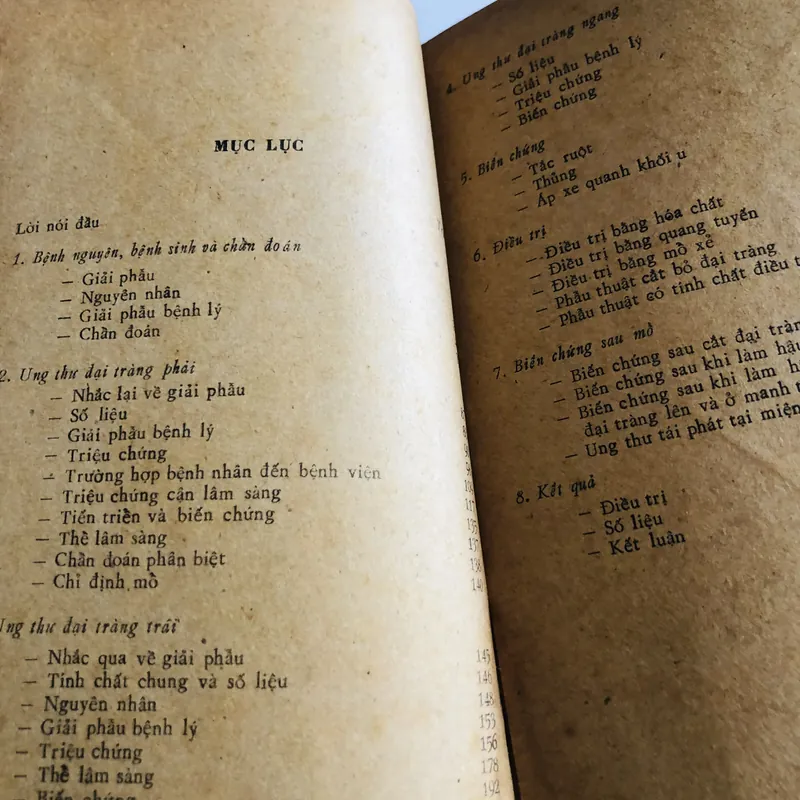 MỤC LỤC
Lời nói đầu
1. Bệnh nguyên, bệnh sinh và chẩn đoán
— Giải phẫu
— Nguyên nhân
— Giải phẫu bệnh lý
— Chẩn đoán
2. Ung thư đại tràng phải
— Nhắc lại về giải phẫu
— Số liệu
— Giải phẫu bệnh lý
— Triệu chứng
— Trường hợp bệnh nhân đến bệnh viện
— Triệu chứng cận lâm sàng
— Tiến triển và biến chứng
— Thể lâm sàng
— Chẩn đoán phân biệt
— Chỉ định mổ
Ung thư đại tràng trái
— Nhắc qua về giải phẫu 145
— Tính chất chung và số liệu 146
— Nguyên nhân 148
— Giải phẫu bệnh lý 153
— Triệu chứng 156
— Thể lâm sàng 178
— Biến chứng 192
4. Ung thư đại tràng ngang
— Số liệu
— Giải phẫu bệnh lý
— Triệu chứng
— Biến chứng
5. Biến chứng
— Tắc ruột
— Thủng
— Áp xe quanh khối u
6. Điều trị
— Điều trị bằng hóa chất
— Điều trị bằng quang tuyến
— Điều trị bằng mổ xẻ
— Phẫu thuật cắt bỏ đại tràng
— Phẫu thuật có tính chất điều t
7. Biến chứng sau mổ
— Biến chứng sau cắt đại tràn
— Biến chứng sau khi làm hậu
— Biến chứng sau khi làm h
đại tràng lên và ở manh t
— Ung thư tái phát tại miện
8. Kết quả
— Điều trị
— Số liệu
— Kết luận